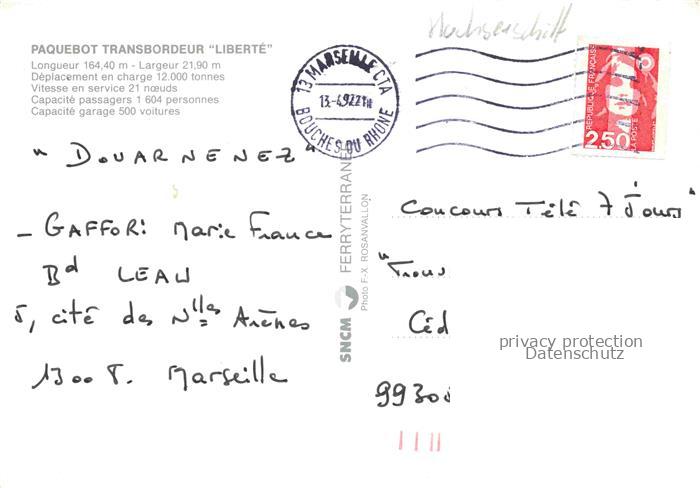 Hochseeschiff
PAQUEBOT TRANSBORDEUR “LIBERTÉ”
Longueur 164,40 m - Largeur 21,90 m
Déplacement en charge 12.000 tonnes
Vitesse en service 21 nœuds
Capacité passagers 1 604 personnes
Capacité garage 500 voitures
13 MARSEILLE CTA
13-4.92 21H
BOUCHES DU RHONE
RÉPUBLIQUE FRANÇAISE
2,50
LA POSTE
" DOUARNENEZ "
- GAFFORI Marie France
Bd LEAU
5, cité des Nlles Arènes
13008. Marseille
SNCM FERRYTERRANÉE
Photo F-X. ROSANVALLON
Concours Télé 7 Jours"
Céd
99300
privacy protection
Datenschutz